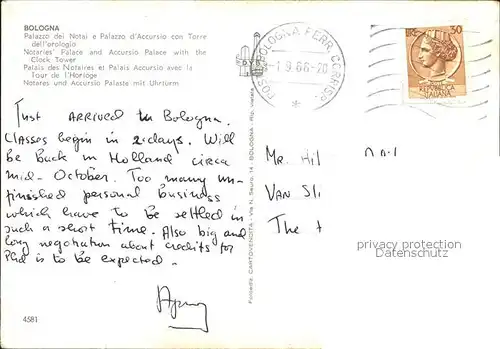 BOLOGNA
Palazzo dei Notai e Palazzo d'Accursio con Torre
dell'orologio
Notaries' Palace and Accursio Palace with the
Clock Tower
Palais des Notaires et Palais Accursio avec la
Tour de l'Horloge
Notares und Accursio Palaste mit Uhrturm
Just ARRIVED in Bologna.
Classes begin in 2 days. Will
be back in Holland circa
mid-October. Too many un-
finished personal business
which have to be settled in
such a short time. Also big and
long negotiation about credits for
Phd is to be expected.
4581
Fotoediz. CARTOVENDITA - Via N. Sauro, 14 - BOLOGNA - Rip. vietata
BOLOGNA FERR. CORRISP.
1.9.66-20
LIRE 30
REPVBBLICA
ITALIANA
Mr. Hil
VAN SL
The
privacy protection
Datenschutz